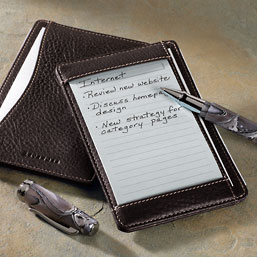 Internet
• Review new website
• Discuss homepage
design
• New strategy for
category pages